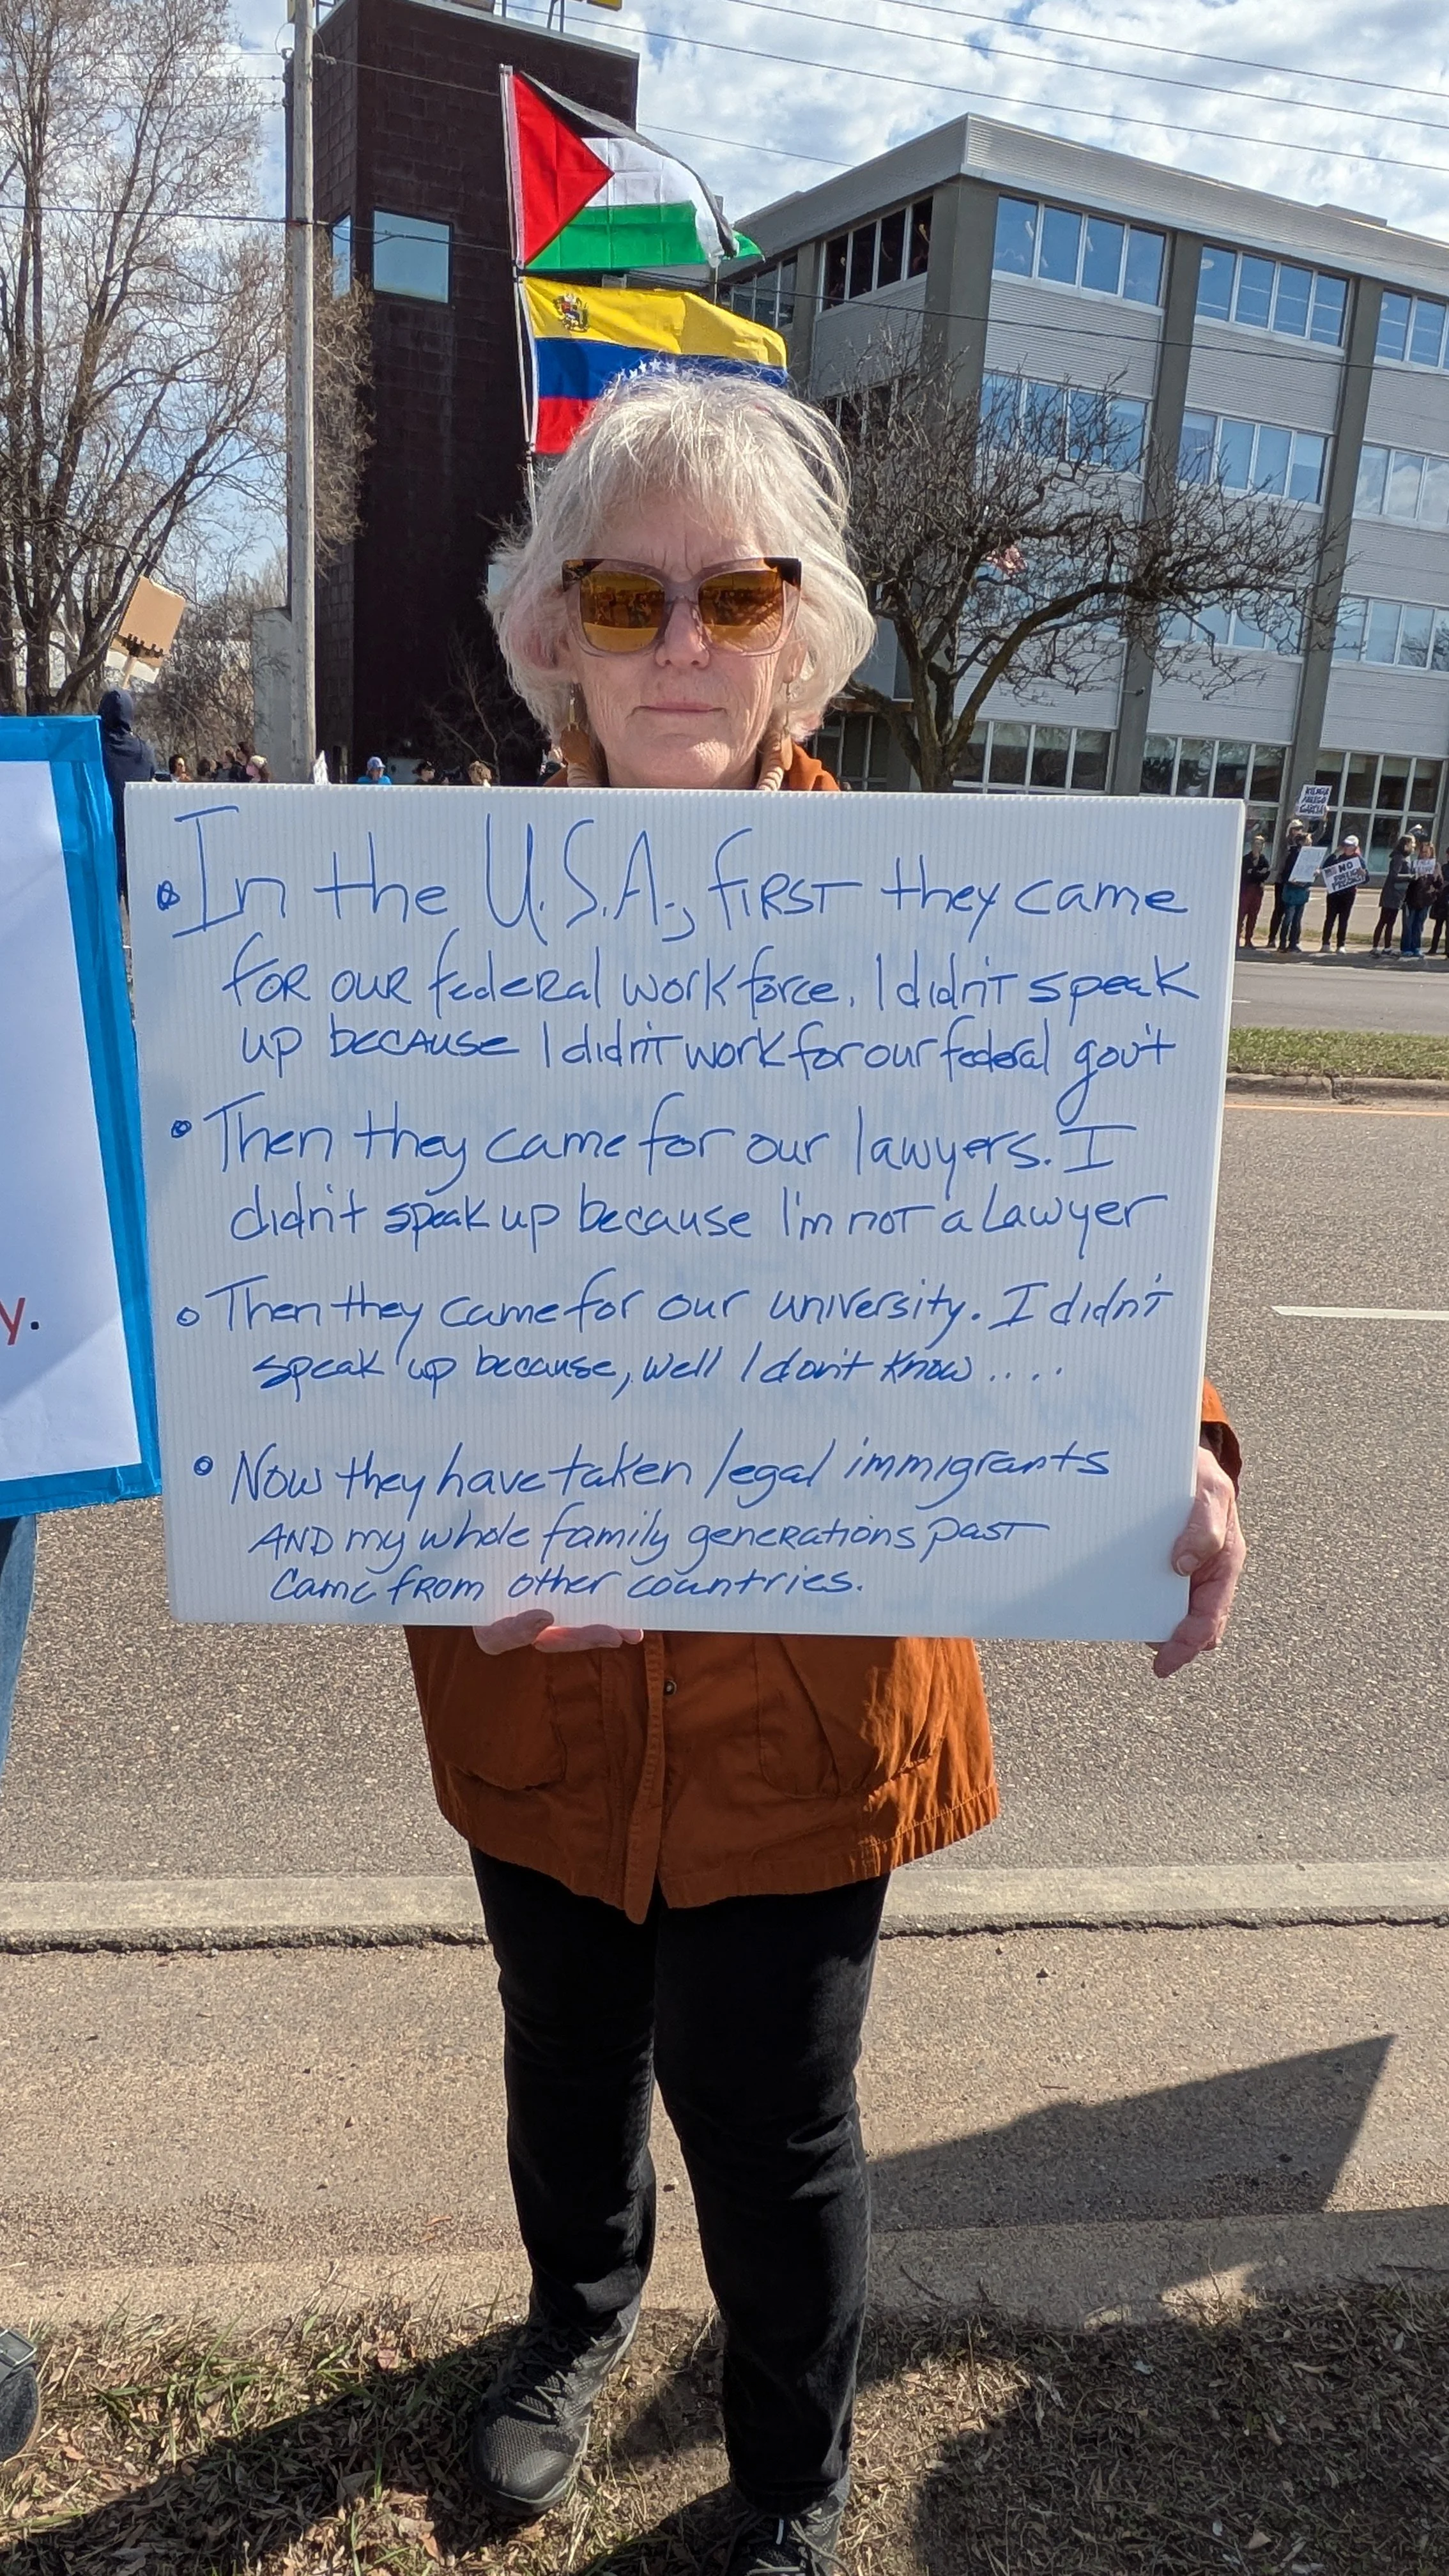 • In the U.S.A., first they came
for our federal workforce. I didn't speak
up because I didn't work for our federal gov't
• Then they came for our lawyers. I
didn't speak up because I'm not a Lawyer
• Then they came for our university. I didn't
speak up because, well I don't know....
• Now they have taken legal immigrants
AND my whole family generations past
came from other countries.
y.
KILMAR
ABREGO
GARCIA
NO